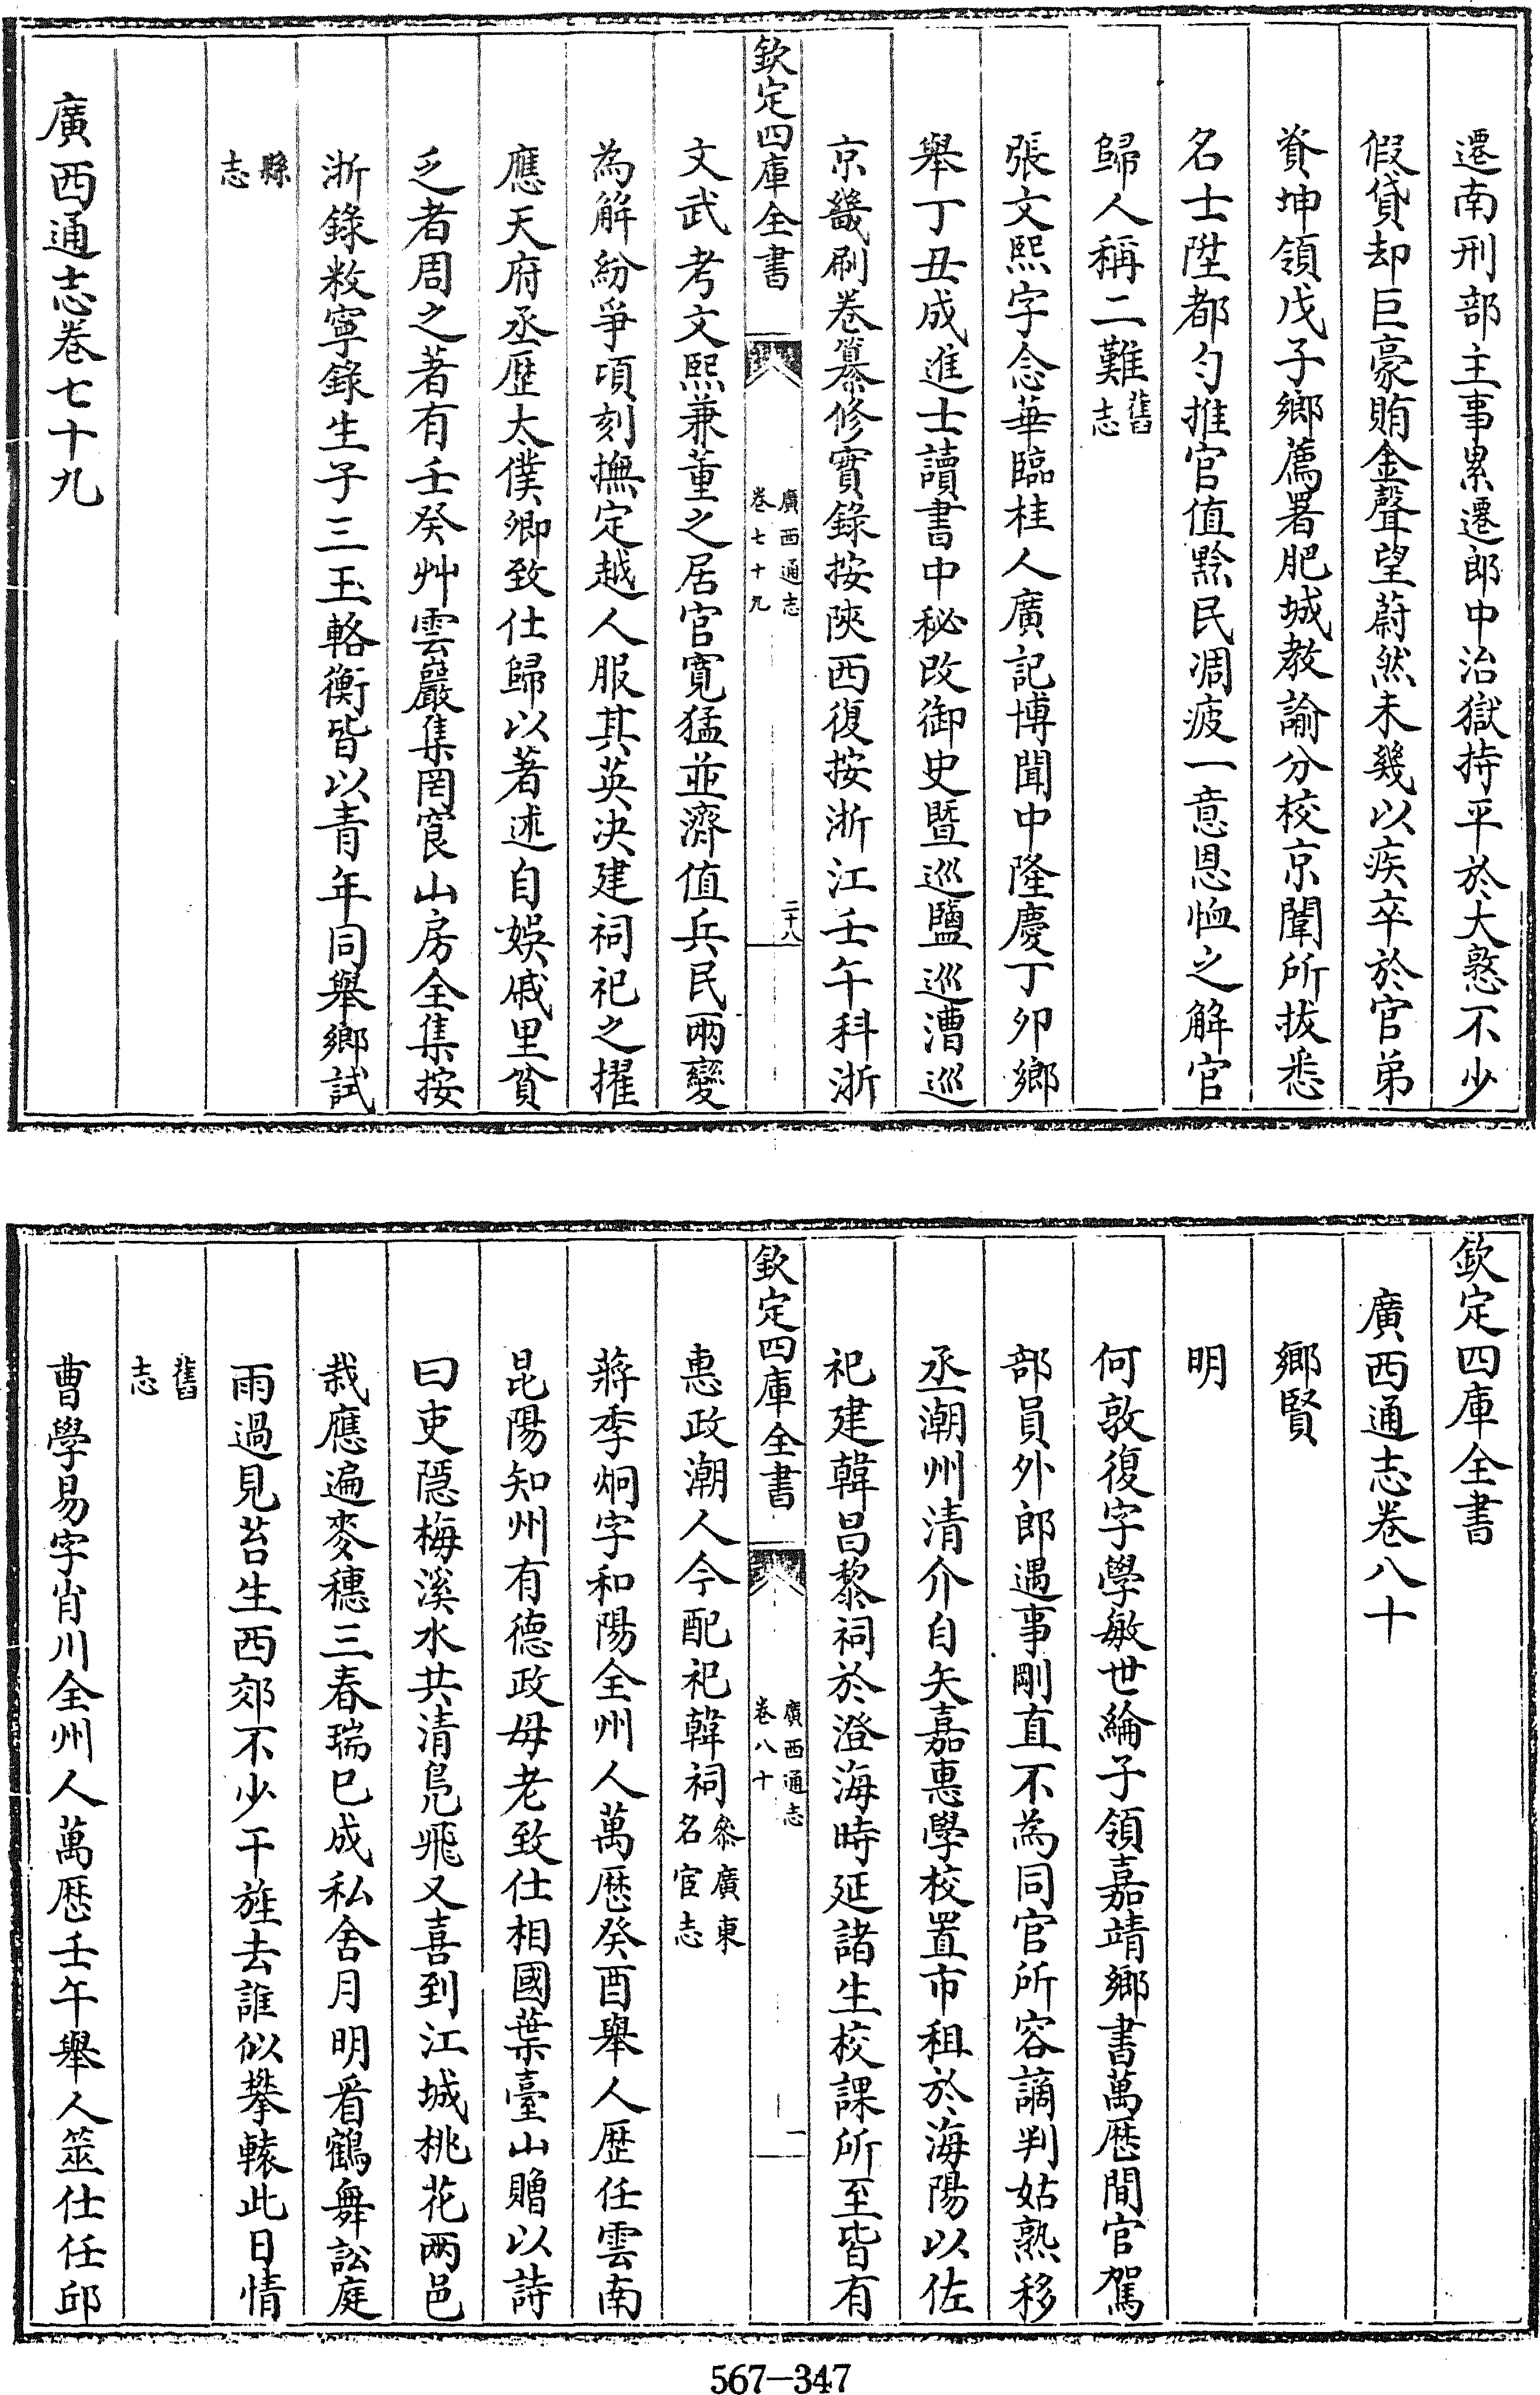 遷南刑部主事累遷郎中治獄持平於大憝不少
假貸却巨豪賄金聲望蔚然未幾以疾卒於官弟
資坤領戊子鄉薦署肥城教諭分校京闈所拔悉
名士陞都勻推官值黔民凋疲一意恩恤之解官
歸人稱二難舊志
張文熙字念華臨桂人廣記博聞中隆慶丁卯鄉
舉丁丑成進士讀書中秘改御史暨巡鹽巡漕巡
京畿刷卷纂修實錄按陜西復按浙江壬午科浙
欽定四庫全書
廣西通志
卷七十九
二十八
文武考文熙兼董之居官寛猛並濟值兵民兩變
為解紛爭頃刻撫定越人服其英决建祠祀之擢
應天府丞歴太僕卿致仕歸以著述自娛戚里貧
乏者周之著有壬癸艸雲巖集罔㝗山房全集按
浙錄敉寧錄生子三玉輅衡皆以青年同舉鄉試
縣志
廣西通志卷七十九
欽定四庫全書
廣西通志卷八十
鄉賢
明
何敦復字學敏世綸子領嘉靖鄉書萬歴間官駕
部員外郎遇事剛直不為同官所容謫判姑熟移
丞潮州清介自矢嘉惠學校置市租於海陽以佐
祀建韓昌黎祠於澄海時延諸生校課所至皆有
欽定四庫全書
廣西通志
卷八十
一
惠政潮人今配祀韓祠叅廣東名宦志
蔣季烱字和陽全州人萬歴癸酉舉人歴任雲南
昆陽知州有德政母老致仕相國葉臺山贈以詩
曰吏隠梅溪水共清鳬飛又喜到江城桃花兩邑
栽應遍麥穗三春瑞已成私舍月明看鶴舞訟庭
雨過見苔生西郊不少干旌去誰似攀轅此日情
舊志
曹學易字肖川全州人萬歴壬午舉人筮仕任邱
567—347